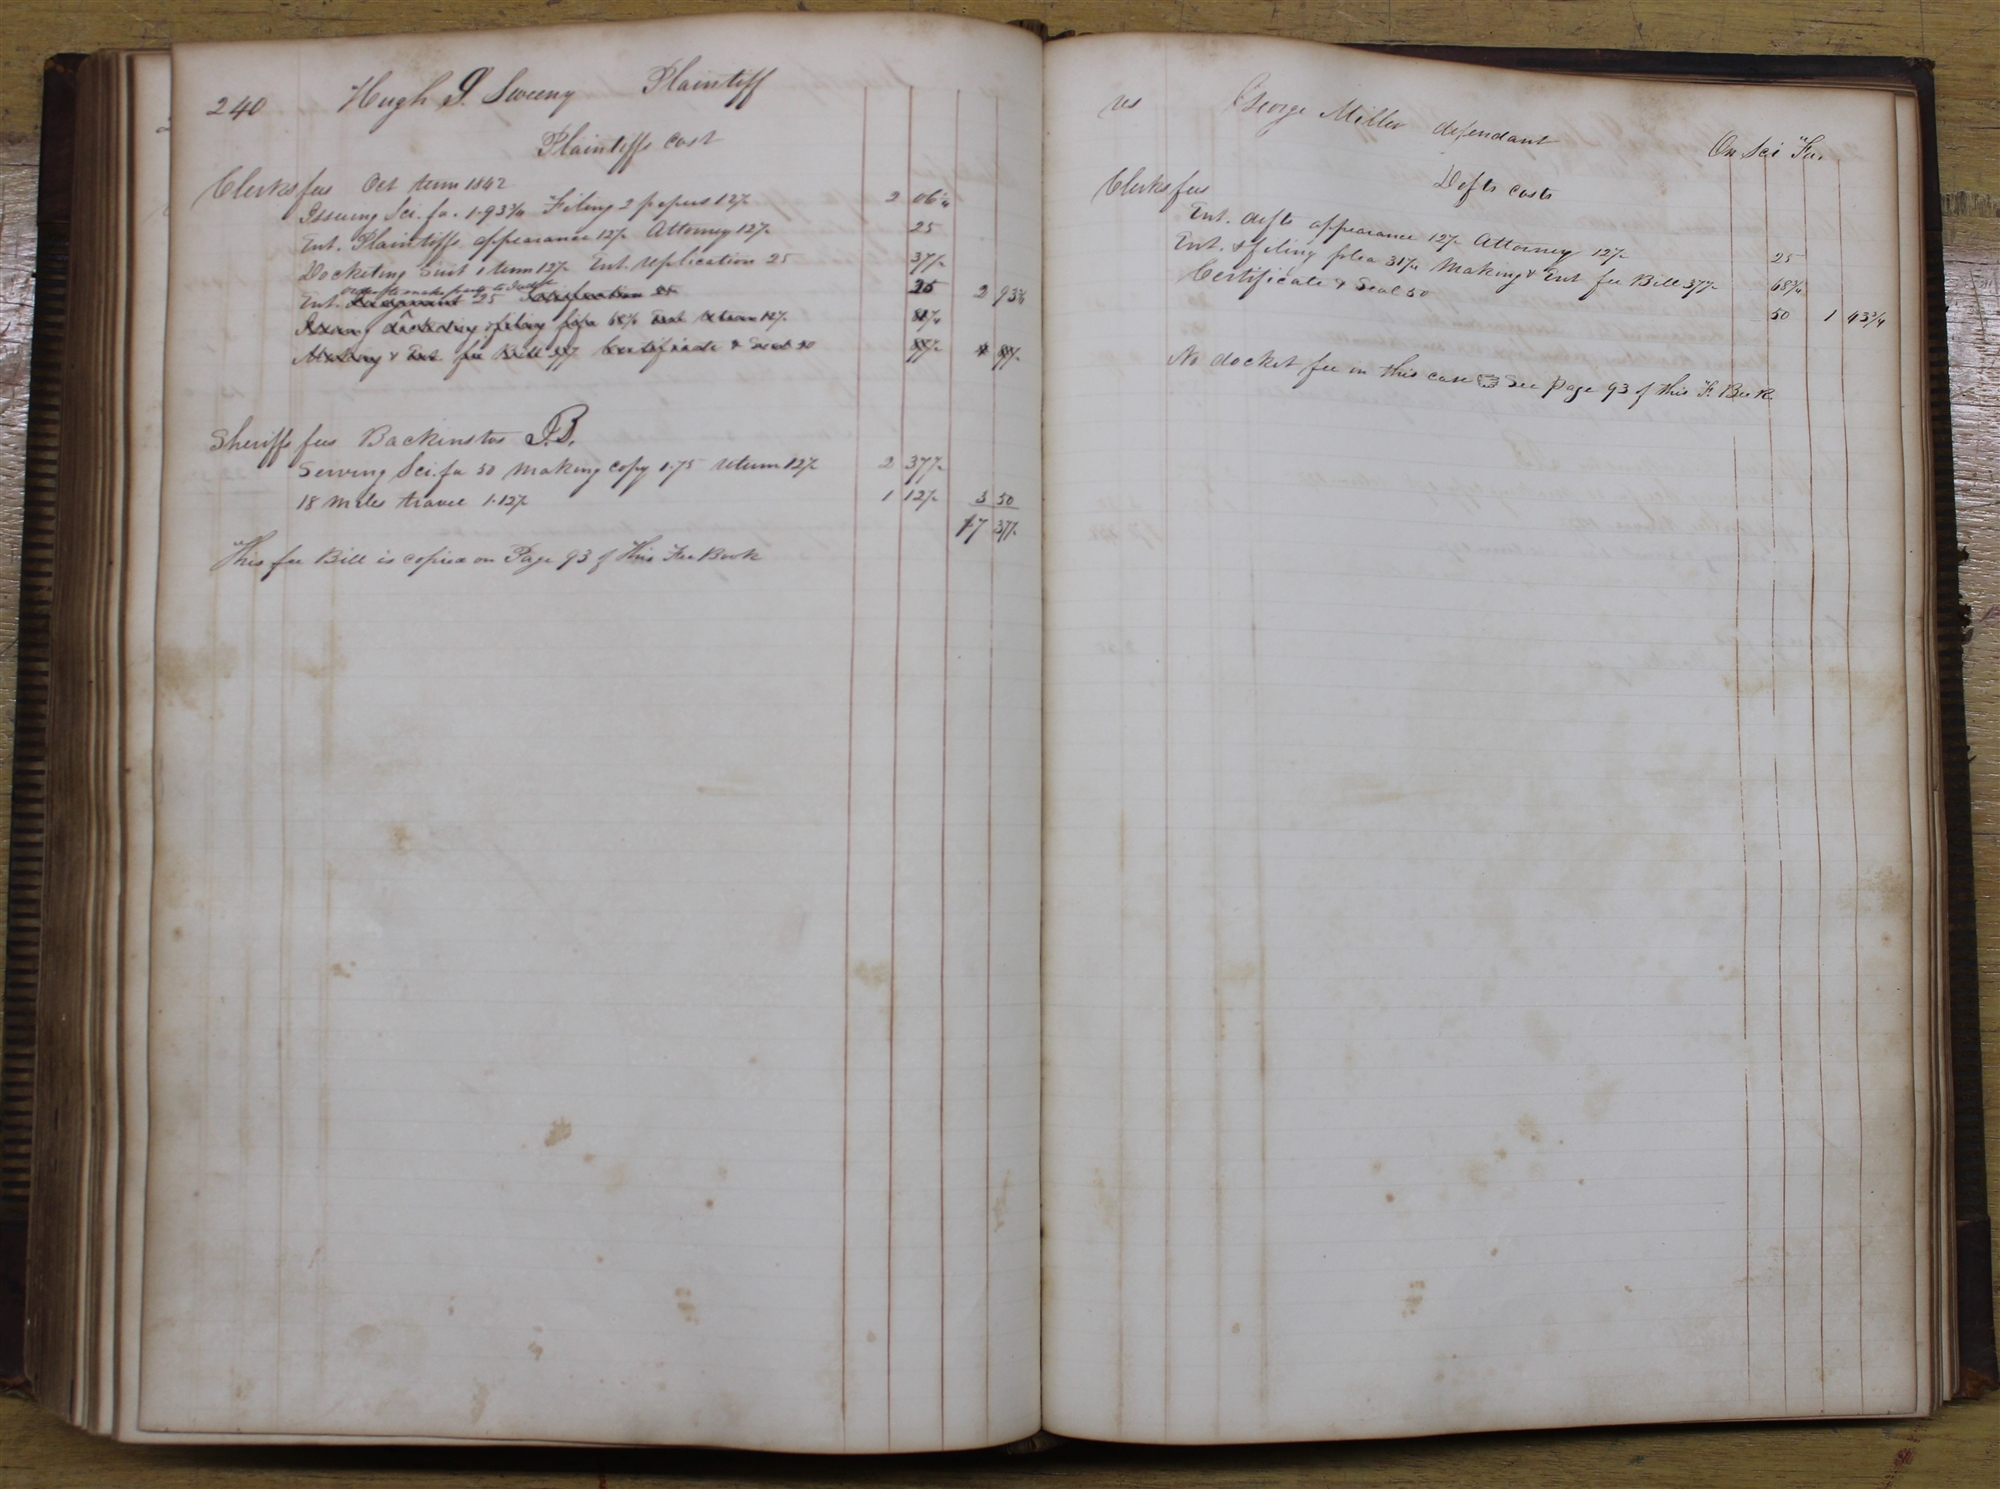 240 Hugh S. Sweeny Plaintiff
Plaintiffs cost
Clerks fees Oct term 1842
Issuing Sci. fa. 1.93¾ Filing 2 papers 12½ 2 06¼
Ent. Plaintiffs appearance 12½ Attorney 12½ 25
Docketing suit 1 term 12½ Ent. replication 25 37½
Ent. Judgment 25 Satisfaction 25 25 2 93¾
docketing & filing 68¾ Ent return 12½ 81¼
Making & Ent. fee Bill 37½ Certificate & Seal 50 87½
Sheriffs fees Backinstos J.B.
Serving Sci. fa 50 making copy 1.75 return 12½ 2 37½
18 miles travel 1.12½ 1 12½ 3 50
7 37½
This fee Bill is copied on Page 93 of this Fee Book
vs George Miller defendant On Sci Fa.
Defts costs
Clerks fees
Ent. defts appearance 12½ Attorney 12½ 25
Ent. & filing plea 31¼ Making & Ent fee Bill 37½ 68¾
Certificate & Seal 50 50 1 43¾
No docket fee in this case See page 93 of this F. Book